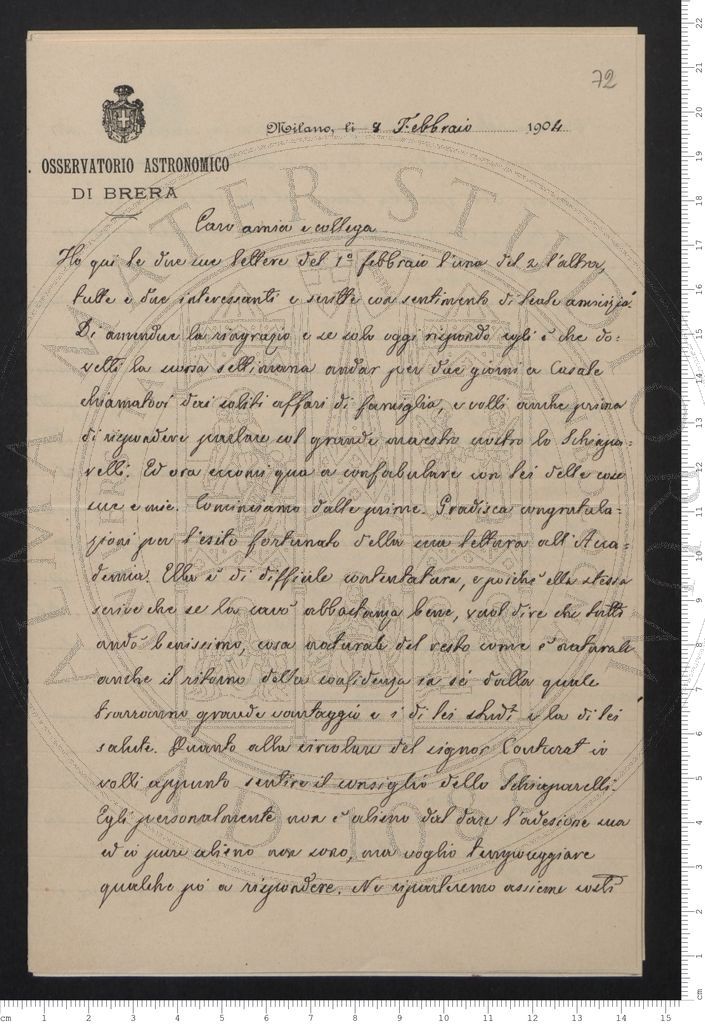 72
Milano, li 8 Febbraio 1904
OSSERVATORIO ASTRONOMICO
DI BRERA
Caro amico e collega
Ho qui le due sue lettere del 1° febbraio l'una del 2 l'altra,
tutte e due interessanti e scritte con sentimento di leale amicizia.
Di amendue la ringrazio e se solo oggi rispondo egli è che do:
vetti la scorsa settimana andar per due giorni a Casale
chiamatovi dai soliti affari di famiglia, e volli anche prima
di rispondere parlare col grande maestro nostro lo Schiapa:
relli. Ed ora eccomi qua a confabulare con lei delle cose
sue e mie. Cominciamo dalle prime. Gradisca congratula-
zioni per l'esito fortunato della sua lettura all'Acca-
demia. Ella è di difficile contentatura, e poichè ella stessa
scrive che se la cavò abbastanza bene, vuol dire che tutto
andò benissimo, cosa naturale del resto come è naturale
anche il ritorno della confidenza in sè dalla quale
trarranno grande vantaggio e i di lei studi e la di lei
salute. Quanto alla circolare del signor Couturat io
volli appunto sentire il consiglio dello Schiaparelli.
Egli personalmente non è alieno dal dare l'adesione sua
ed io pure alieno non sono, ma voglio temporeggiare
qualche po' a rispondere. Ne riparleremo assieme costì